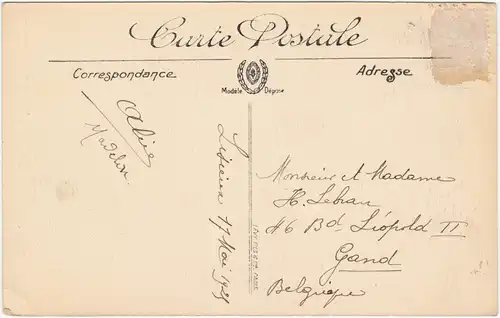 Carte Postale
Correspondance
Adresse
Modèle Déposé
Aline
Madelon
Lisieux 17 Mai 1929
Monsieur et Madame
H. Lebrun
46 Bd Léopold II
Gand
Belgique